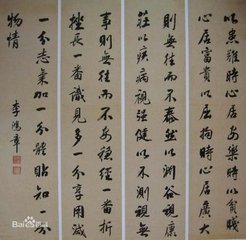 心居安樂時以貧賤
心居富貴以屈拘時心居廣大
則無往而不泰然以淵谷視康
莊以疾病視強健以不測視無
事則無往而不安穩經一番折
挫長一番識見多一分享用減
一分志氣加一分體貼知一分
物情
李鴻章
Bai百科